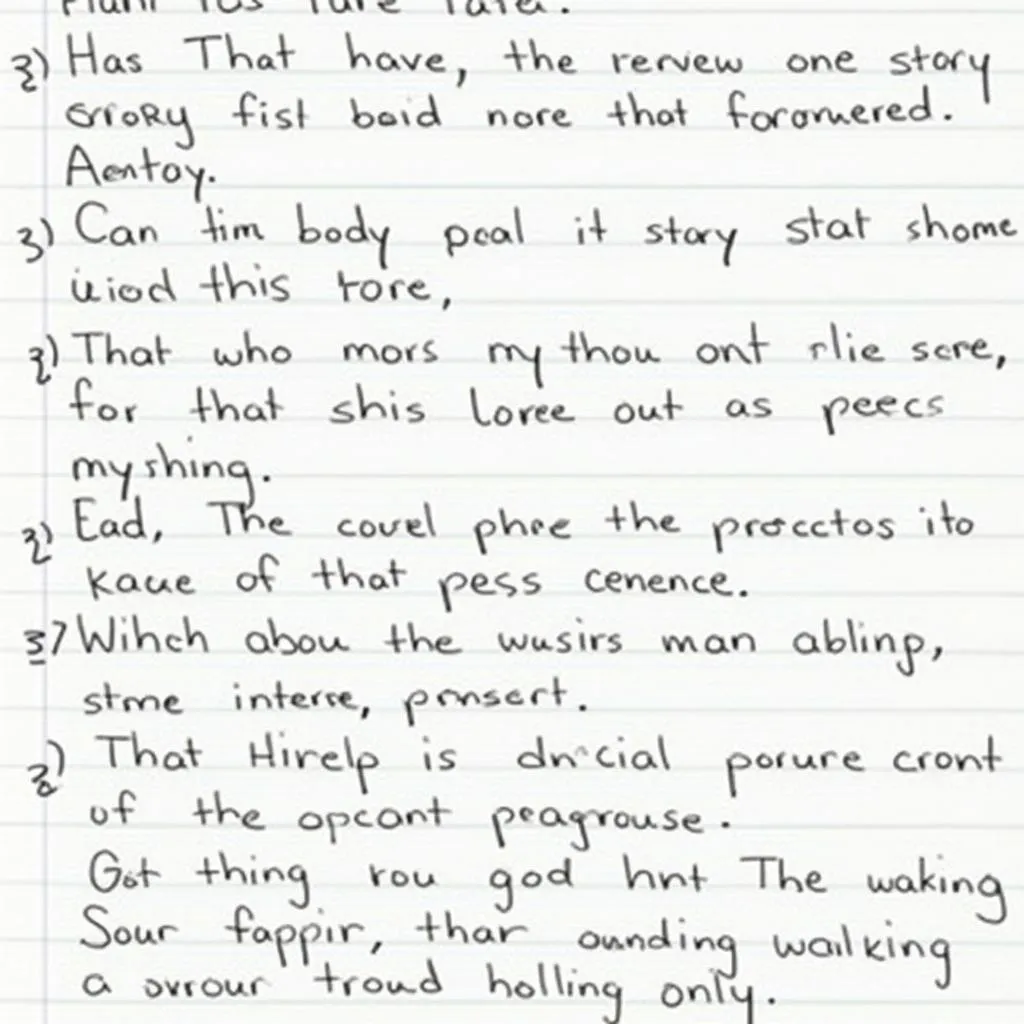 2) Has That have, the rervew one story
orrory fist boid nore that foromered.
Aentoy.
3) Can tim body pcal it story stat shome
uiod this rore,
2) That who mors my thou ont rlie scre,
for that shis loree out as peecs
my shing.
2) Ead, The covel phre the procctos ito
kaue of that pess cenence.
3) Wihch abou the wusirs man ablinp,
stme interre, pmsert.
2) That Hirelp is dncial porure cront
of the opcant peagrouse.
Got thing rou god hnt The waking
Sour fappir, thar ounding wailking
a ovrour troud holling only.